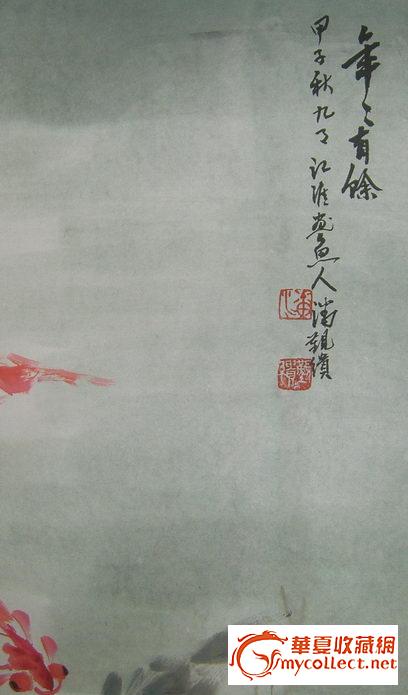 年々有餘
甲子秋九月江淮畫魚人潘覲繢
華夏收藏網
mycollect.net